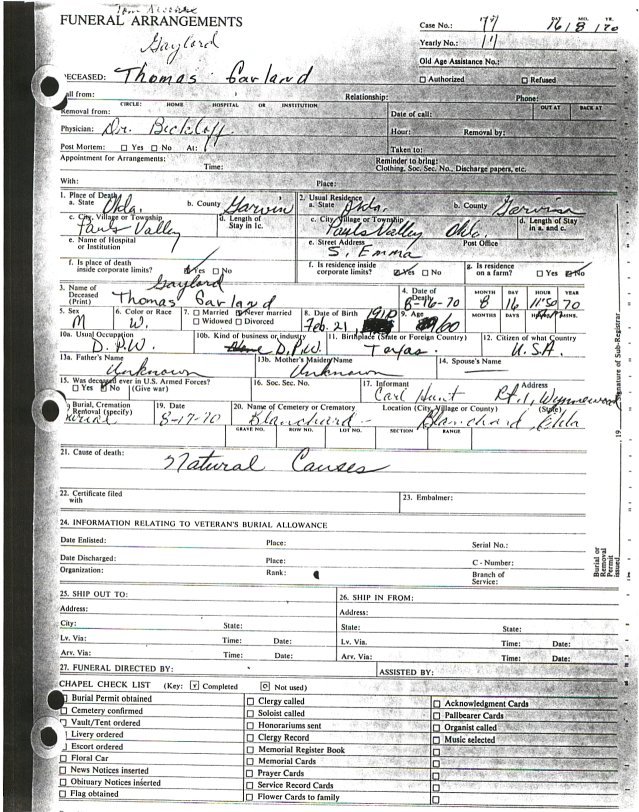 FUNERAL ARRANGEMENTS
Case No.: 77 DAY MO. YR. 16 8 70
Gaylord
Yearly No.:
Old Age Assistance No.:
DECEASED: Thomas Garland
Authorized Refused
Call from: Relationship: Phone:
CIRCLE: HOME HOSPITAL OR INSTITUTION OUT AT BACK AT
Removal from: Date of call:
Physician: Dr. Hour: Removal by:
Post Mortem: Yes No At: Taken to:
Appointment for Arrangements: Reminder to bring:
Time: Clothing, Soc. Sec. No., Discharge papers, etc.
With: Place:
1. Place of Death 2. Usual Residence
a. State Okla. b. County Garvin a. State Okla. b. County Garvin
c. City, Village or Township d. Length of Stay in 1c. c. City, Village or Township d. Length of Stay in a. and c.
Pauls Valley Pauls Valley Okla.
e. Name of Hospital or Institution e. Street Address Post Office
S. Emma
f. Is place of death inside corporate limits? Yes No f. Is residence inside corporate limits? Yes No g. Is residence on a farm? Yes No
Gaylord
3. Name of Deceased (Print) Thomas Garland 4. Date of Death 8-16-70 MONTH DAY HOUR YEAR
8 16 11:50 70
5. Sex 6. Color or Race 7. Married Never married 8. Date of Birth 1910 9. Age MONTHS DAYS HOURS MINS.
M W. Widowed Divorced Feb. 21, 60
10a. Usual Occupation 10b. Kind of business or industry 11. Birthplace (State or Foreign Country) 12. Citizen of what Country
D.P.W. D.P.W. Texas U.S.A.
13a. Father's Name 13b. Mother's Maiden Name 14. Spouse's Name
Unknown Unknown
15. Was deceased ever in U.S. Armed Forces? 16. Soc. Sec. No. 17. Informant Address
Yes No (Give war) Carl Hunt Rt. 1, Wynnewood
Burial, Cremation Removal (specify) 19. Date 20. Name of Cemetery or Crematory Location (City, Village or County) (State)
Burial 8-17-70 Blanchard Blanchard, Okla
GRAVE NO. ROW NO. LOT NO. SECTION RANGE
21. Cause of death:
Natural Causes
22. Certificate filed with 23. Embalmer:
24. INFORMATION RELATING TO VETERAN'S BURIAL ALLOWANCE
Date Enlisted: Place: Serial No.:
Date Discharged: Place: C - Number:
Organization: Rank: Branch of Service:
25. SHIP OUT TO: 26. SHIP IN FROM:
Address: Address:
City: State: State: State:
Lv. Via: Time: Date: Lv. Via. Time: Date:
Arv. Via: Time: Date: Arv. Via: Time: Date:
27. FUNERAL DIRECTED BY: ASSISTED BY:
CHAPEL CHECK LIST (Key: Completed Not used)
Burial Permit obtained Clergy called Acknowledgment Cards
Cemetery confirmed Soloist called Pallbearer Cards
Vault/Tent ordered Honorariums sent Organist called
Livery ordered Clergy Record Music selected
Escort ordered Memorial Register Book
Floral Car Memorial Cards
News Notices inserted Prayer Cards
Obituary Notices inserted Service Record Cards
Flag obtained Flower Cards to family
Signature of Sub-Registrar
19
Burial or Removal Permit issued